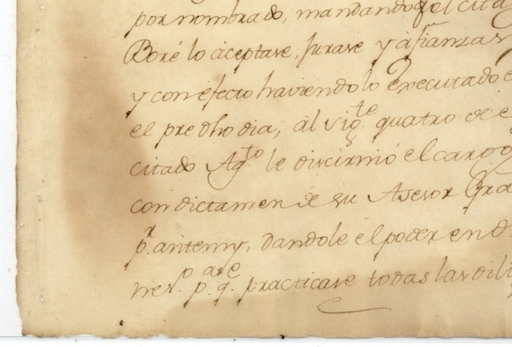 por nombrado, mandando q el cita
Boré lo aceptase, jurase y afianzase
y con efecto haviendolo executado e
el predho dia, al sigte quatro de e
citado Agto le discirnió el cargo
con dictamen de su Asesor Gra
pr antemy, dandole el poder en d
neso pa qe practicase todas las dili